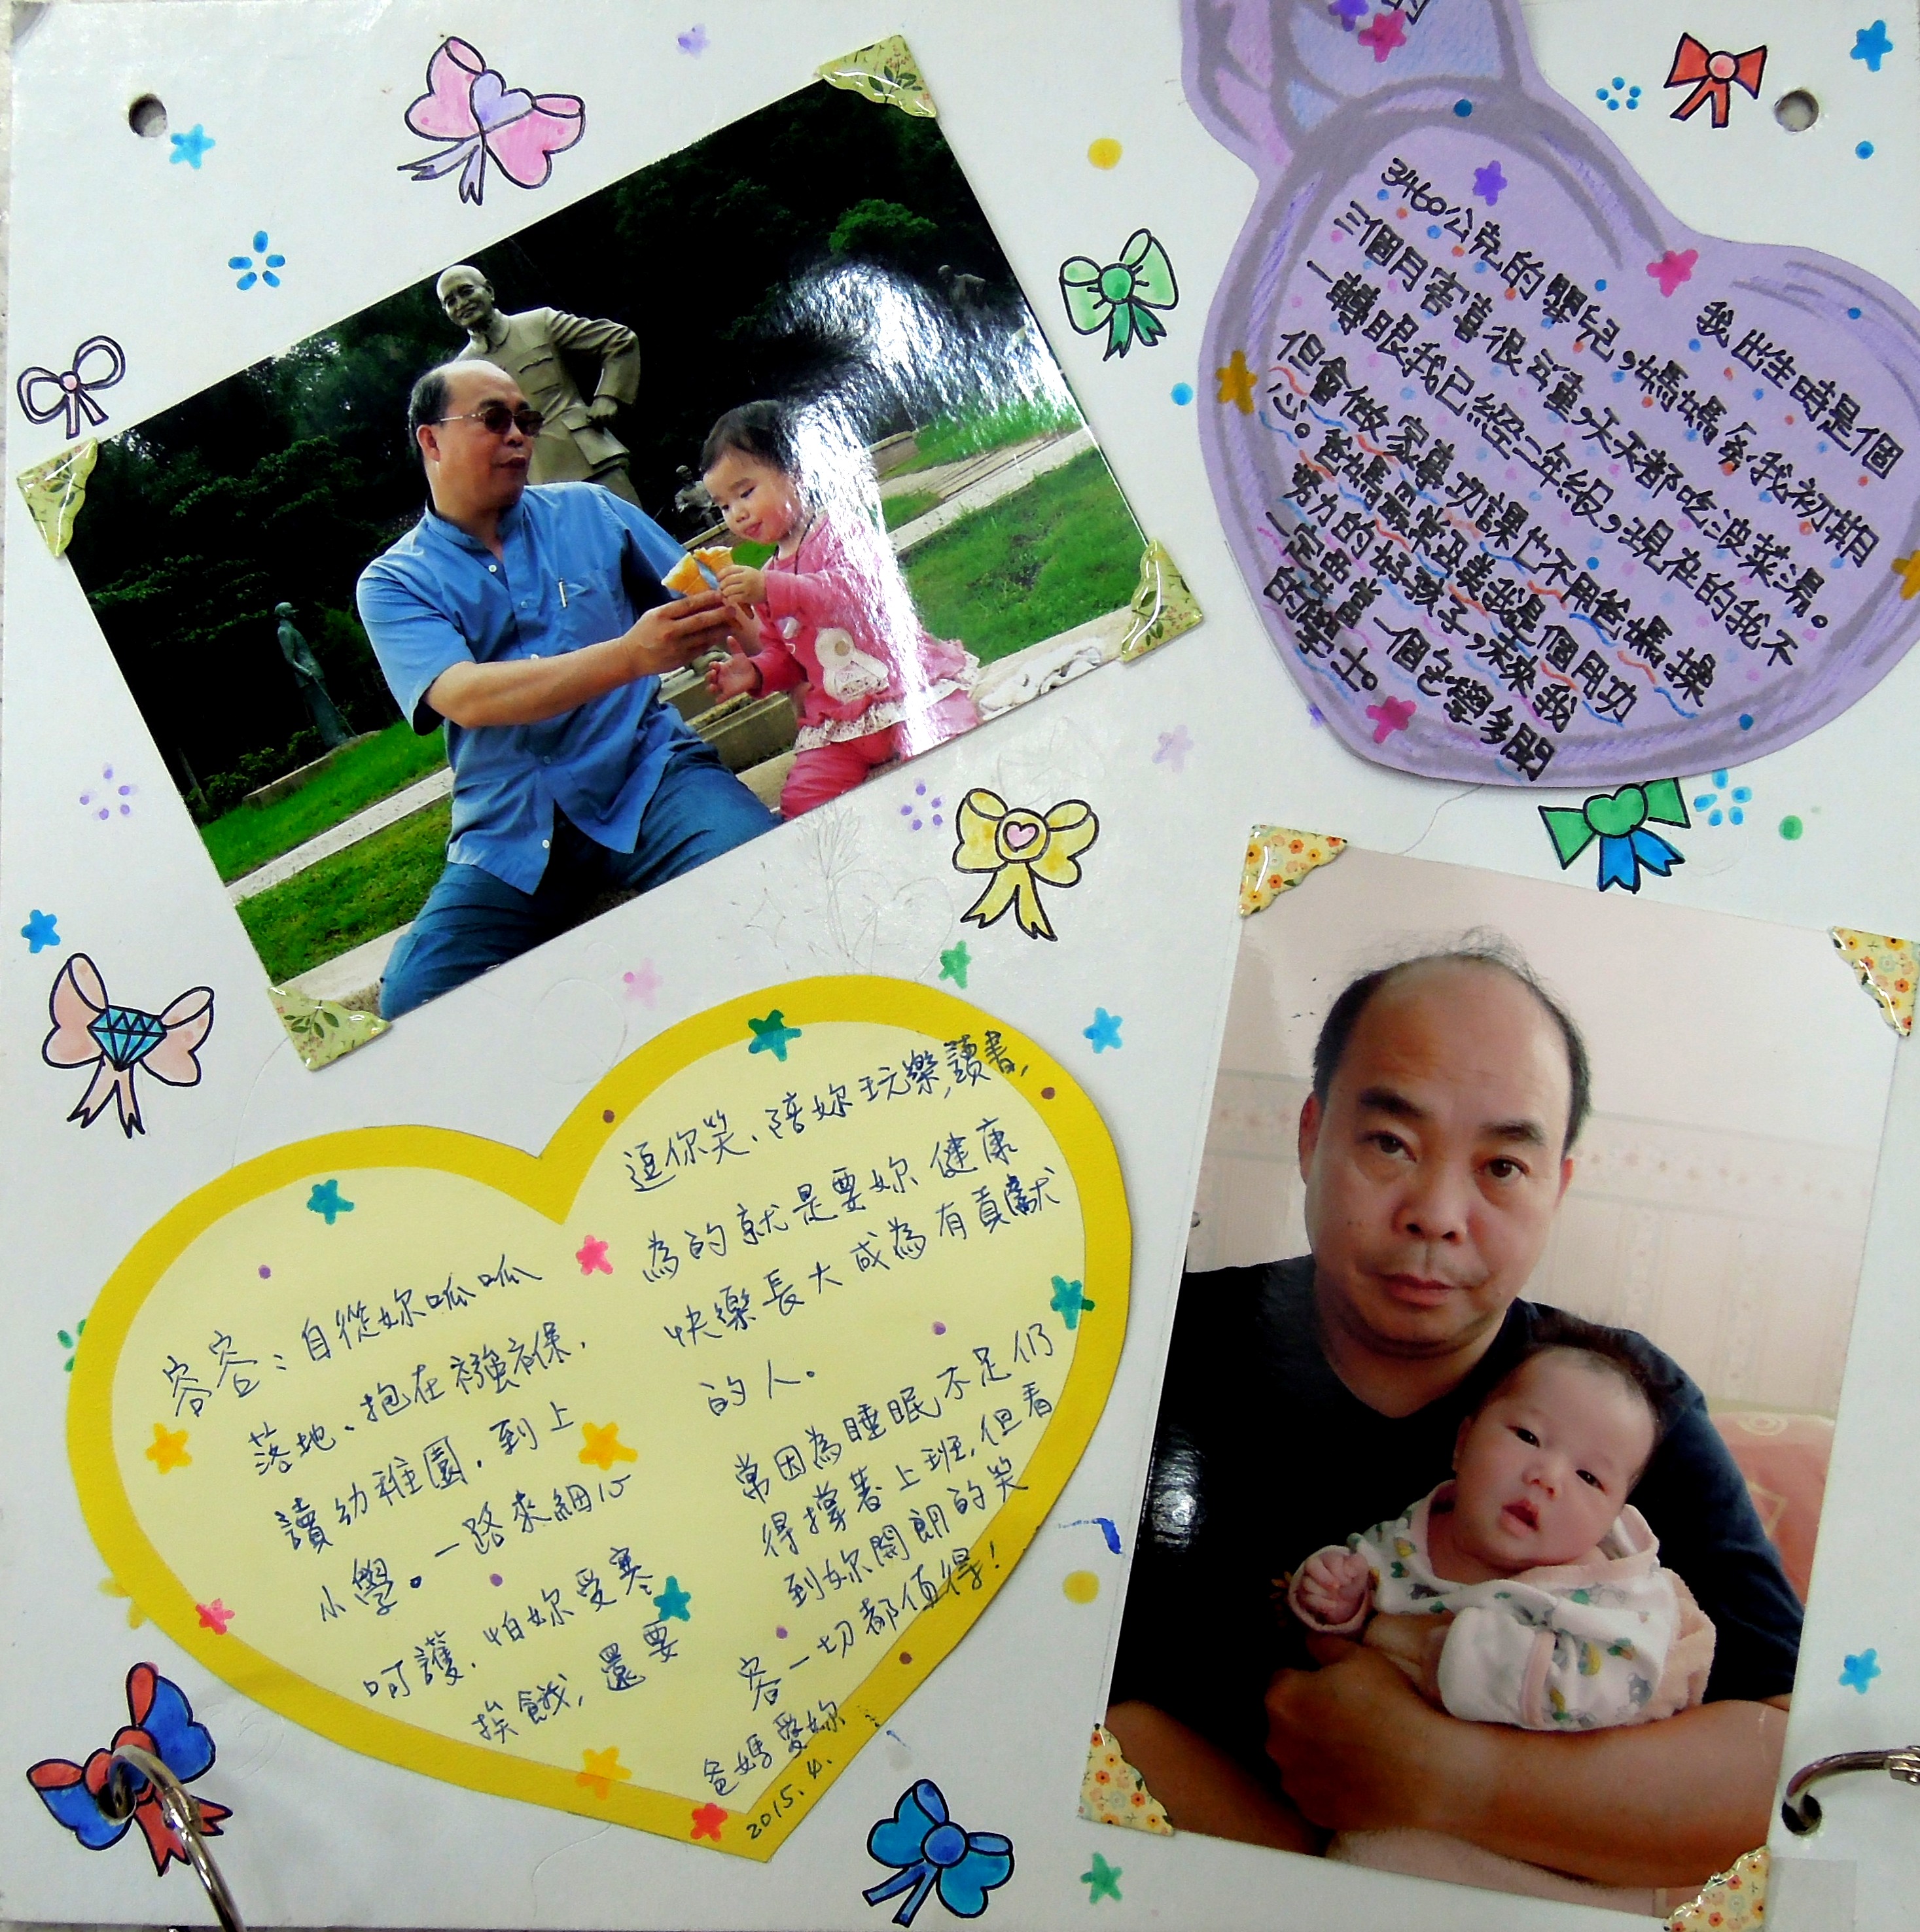 的
我出生時是個
3460公克的嬰兒,媽媽我初期
三個月害喜很重,天天都吃波菜湯。
一轉眼我已經二年級,現在的我不
但會做家事功課也不用爸媽操
心。爸媽最常美我是個用功
努力的好孩子,未來我
一定要當一個包學多聞
的學士。
容容:自從妳呱呱
落地、抱在襁褓,
讀幼稚園,到上
小學。一路來細心
呵護,怕妳受寒
挨餓,還要
逗你笑、陪妳玩樂,讀書,
為的就是要妳健康
快樂長大成為有貢獻
的人。
常因為睡眠不足仍
得撐著上班,但看
到妳開朗的笑
容一切都值得!
爸媽愛妳
2015.4.